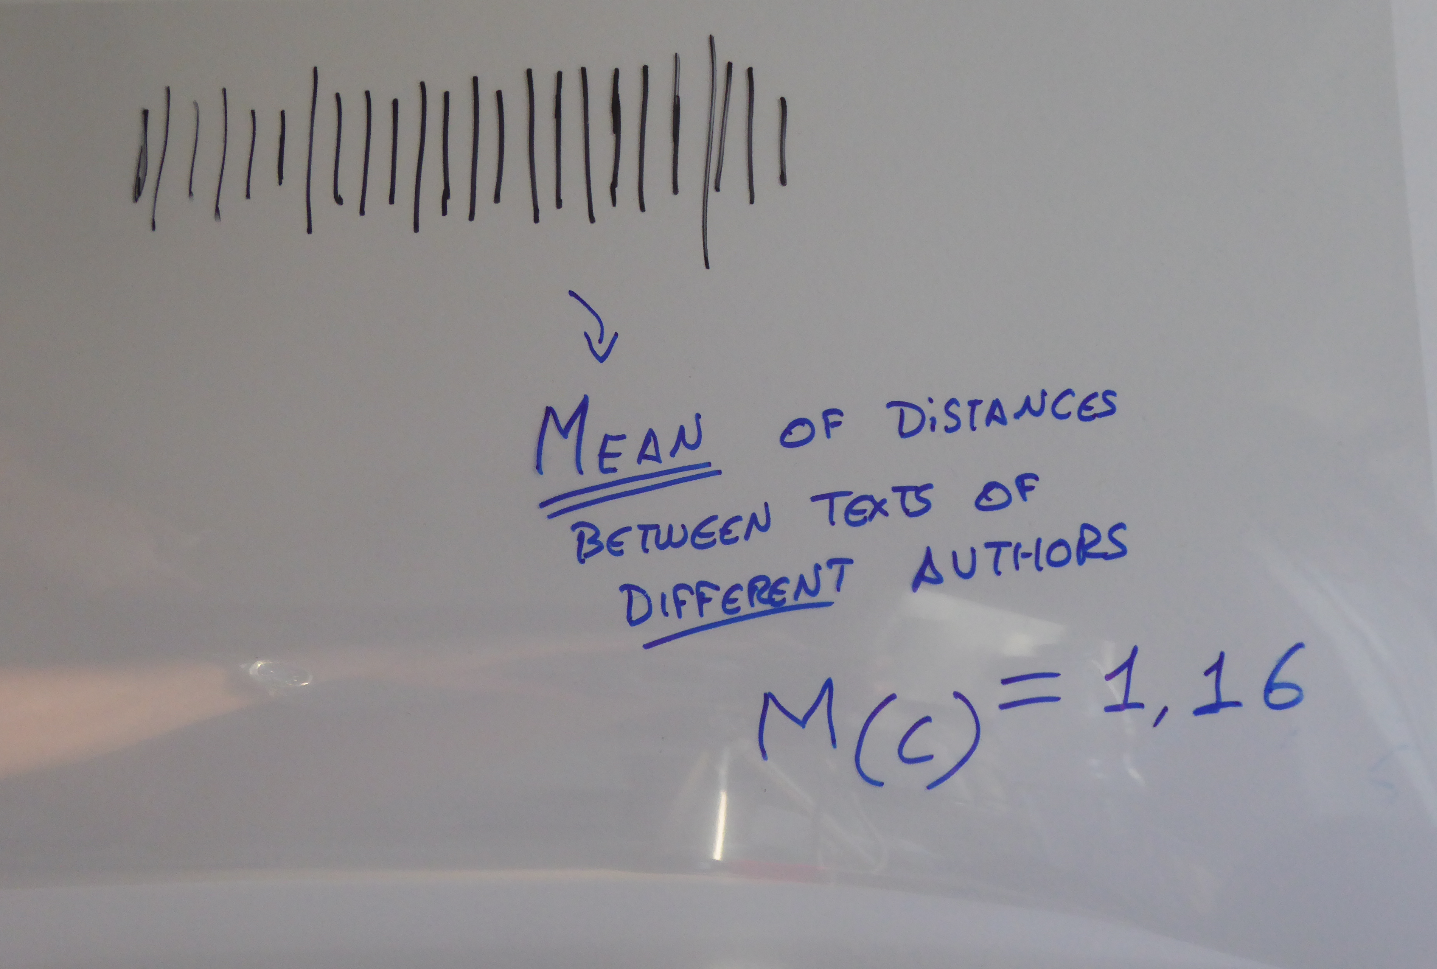 MEAN OF DiSTANCES
BETWEEN TEXTS OF
DIFFERENT AUTHORS
M(C) = 1,16